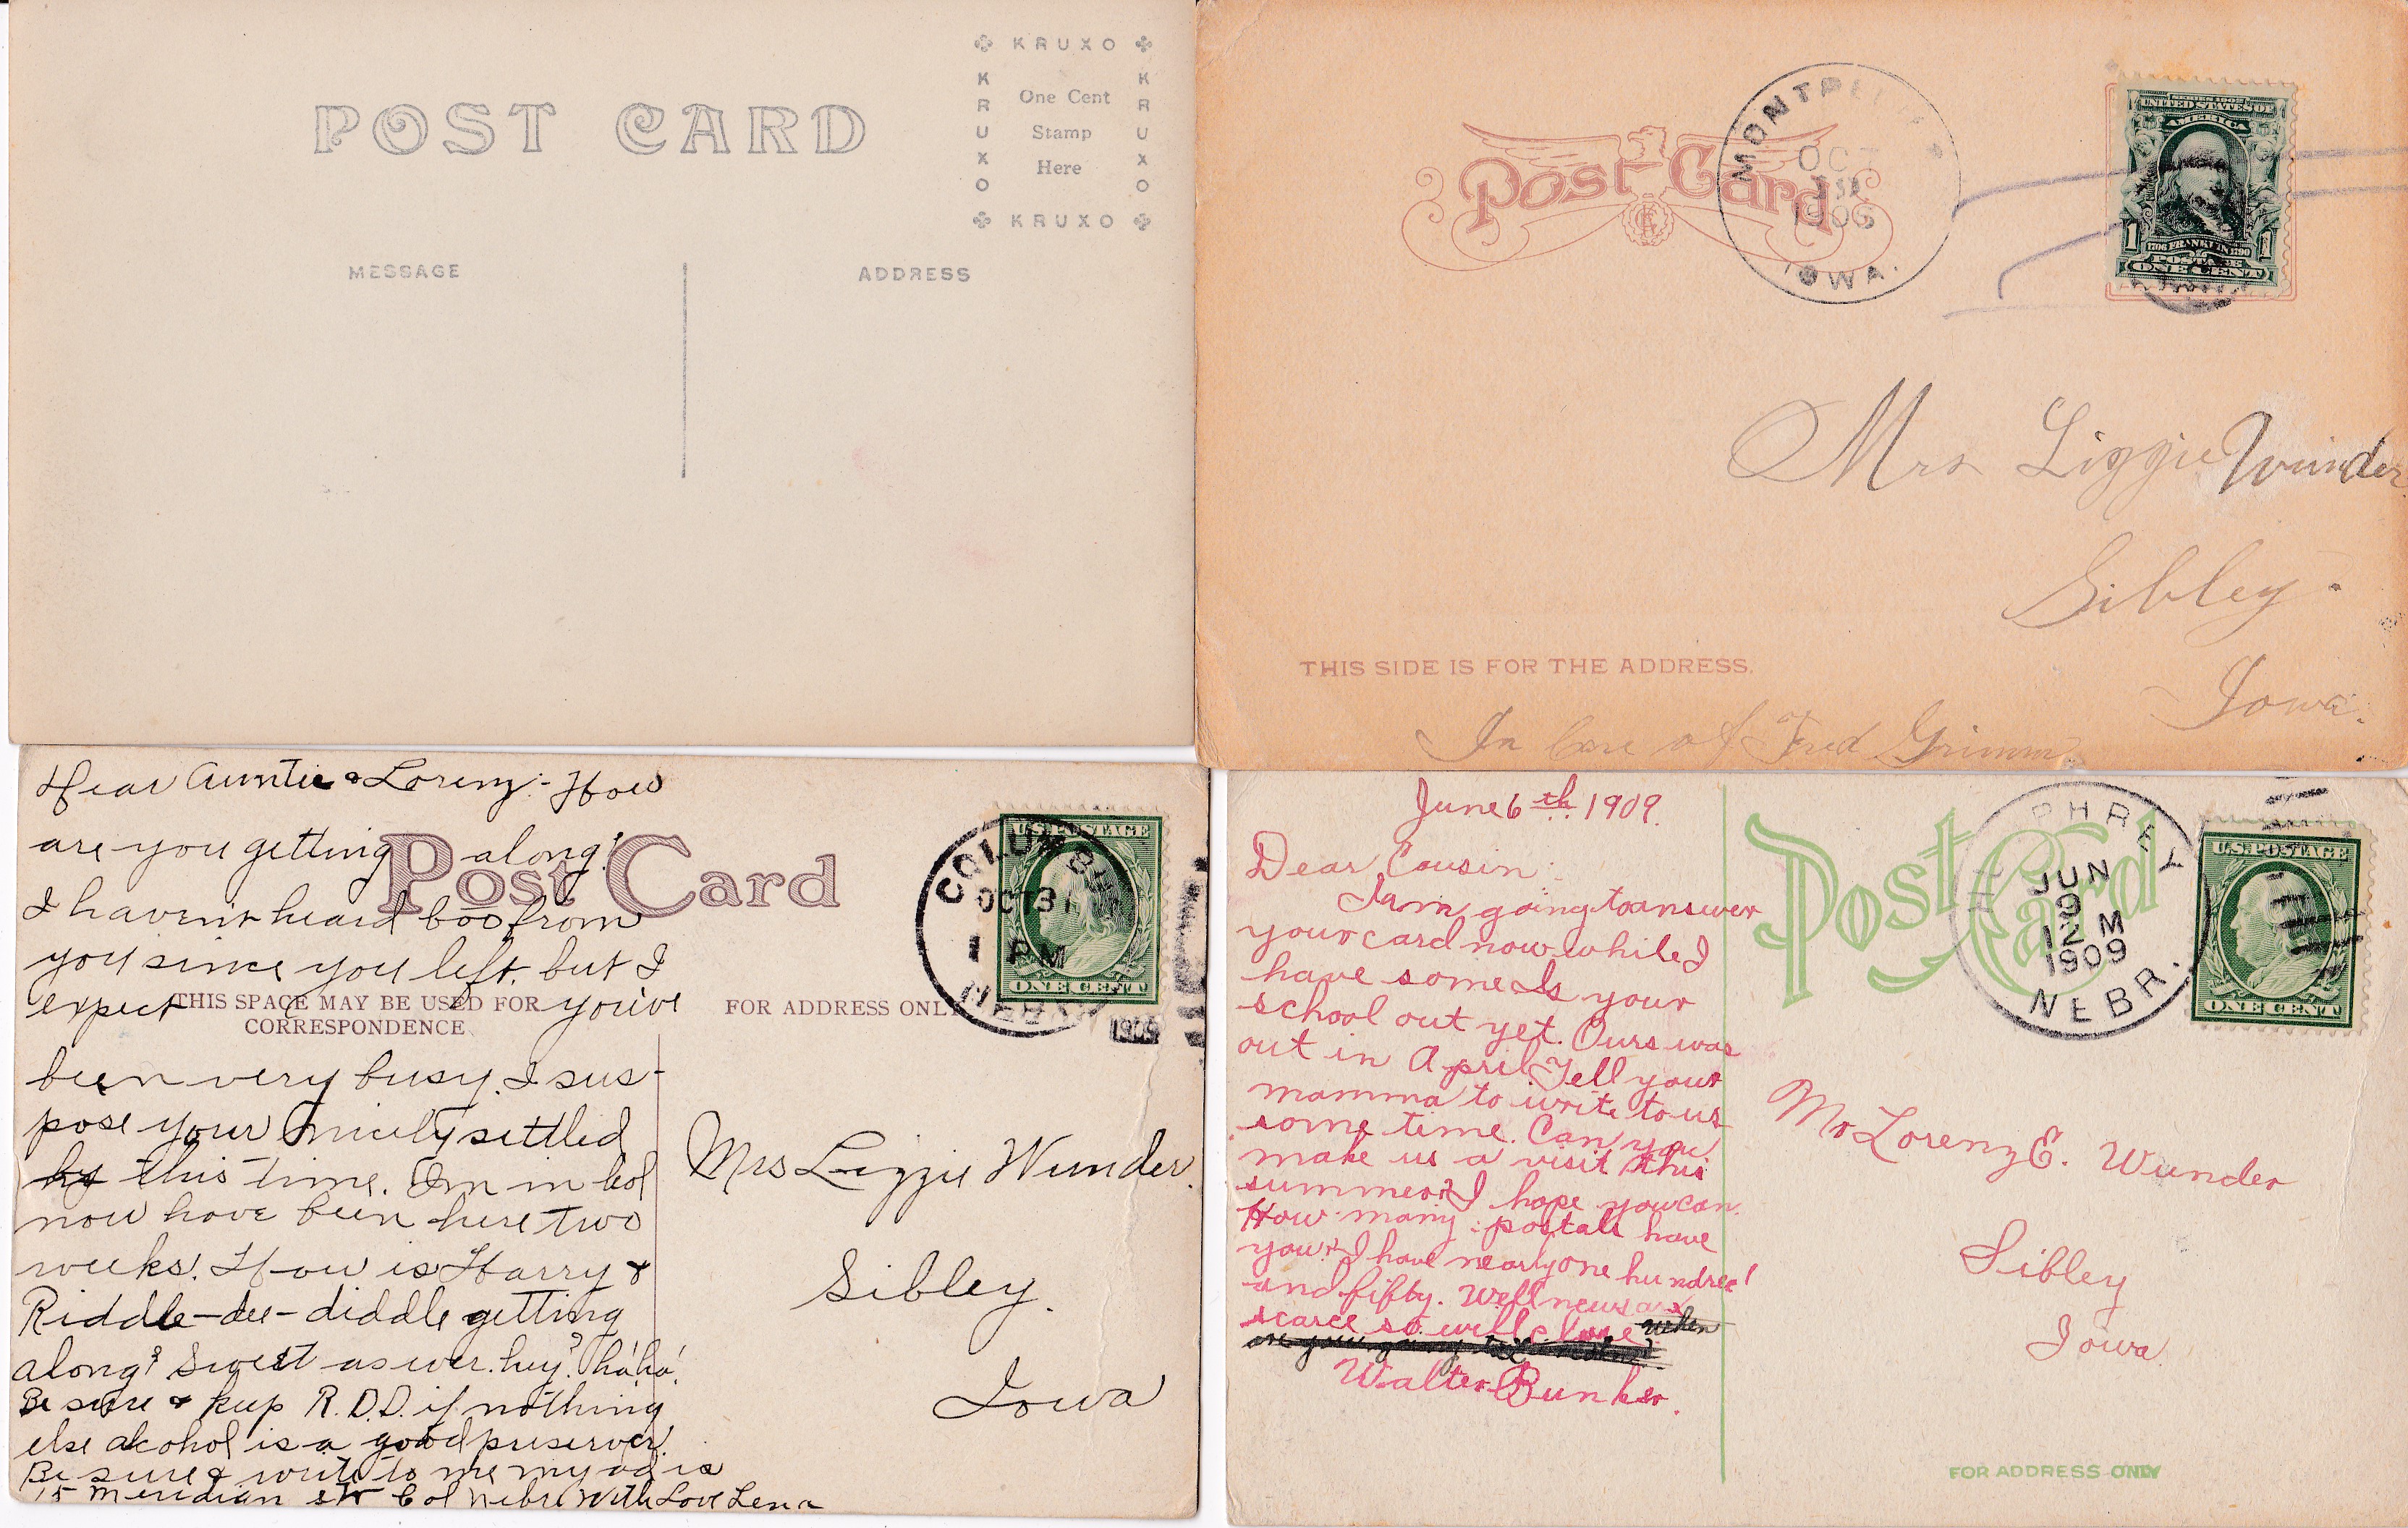 POST CARD
KRUXO
KRUXO
KRUXO
KRUXO
One Cent
Stamp
Here
MESSAGE
ADDRESS
Post Card
MONTPELI
OCT
31
1906
IOWA.
SERIES 1902
UNITED STATES OF
AMERICA
1 1
1706 FRANKLIN 1790
POSTAGE
ONE CENT
Mrs Lizzie Wunder
Sibley.
Iowa.
THIS SIDE IS FOR THE ADDRESS.
In Care of Fred Grimm
Dear Auntie & Lorenz:- How
are you getting along?
I haven't heard boo from
you since you left, but I
expect you've
been very busy. I sus-
pose your nicely settled
by this time. Im in Col
now have been here two
weeks. How is Harry &
Riddle-dee-diddle getting
along? Sweet as ever. hey? ha'ha'.
Be sure & keep R.D.D. if nothing
else alcohol is a good preserver.
Be sure & write to me my ad is
15 Meridian str Col Nebr With Love Lena
Post Card
THIS SPACE MAY BE USED FOR
CORRESPONDENCE
FOR ADDRESS ONLY
COLUMBUS
OCT 31
1 PM
NEBR
1909
U.S. POSTAGE
ONE CENT
Mrs Lizzie Wunder.
Sibley.
Iowa
June 6th 1909.
Dear Cousin:
I am going to answer
your card now while I
have some Is your
school out yet. Ours was
out in April Tell your
mamma to write to us
some time. Can you
make us a visit this
summer? I hope you can.
How many postals have
you? I have nearly one hundred
and fifty. Well news are
scarce so will close when
Walter Bunker.
Post Card
HUMPHREY
JUN
9
12 M
1909
NEBR.
U.S. POSTAGE
ONE CENT
Mr Lorenz E. Wunder
Sibley
Iowa
FOR ADDRESS ONLY